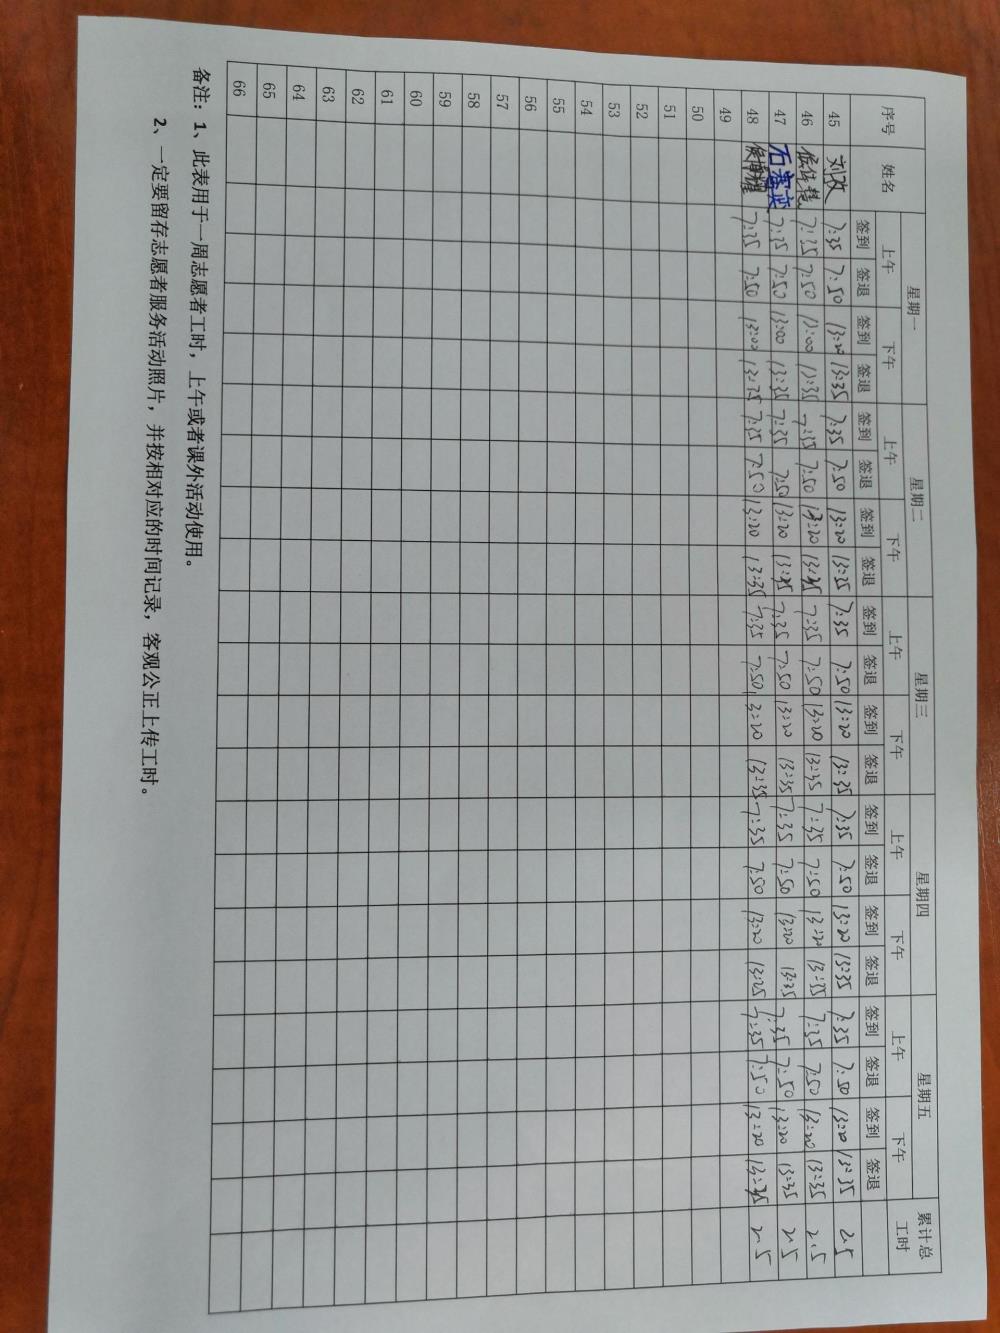 序号 姓名 星期一 星期二 星期三 星期四 星期五 累计总工时
上午 下午 上午 下午 上午 下午 上午 下午 上午 下午
签到 签退 签到 签退 签到 签退 签到 签退 签到 签退 签到 签退 签到 签退 签到 签退 签到 签退 签到 签退
45 刘孜 7:35 7:50 13:20 13:35 7:35 7:50 13:20 13:35 7:35 7:50 13:20 13:35 7:35 7:50 13:20 13:35 7:35 7:50 13:20 13:35 2.5
46 7:35 7:50 13:00 13:35 7:35 7:50 13:20 13:35 7:35 7:50 13:20 13:35 7:35 7:50 13:20 13:35 7:35 7:50 13:20 13:35 2.5
47 石 7:35 7:50 13:00 13:35 7:35 7:50 13:20 13:35 7:35 7:50 13:20 13:35 7:35 7:50 13:20 13:35 7:35 7:50 13:20 13:35 2.5
48 7:35 7:50 13:00 13:35 7:35 7:50 13:20 13:35 7:35 7:50 13:20 13:35 7:35 7:50 13:20 13:35 7:35 7:50 13:20 13:35 2.5
49
50
51
52
53
54
55
56
57
58
59
60
61
62
63
64
65
66
备注：1、此表用于一周志愿者工时，上午或者课外活动使用。
2、一定要留存志愿者服务活动照片，并按相对应的时间记录，客观公正上传工时。